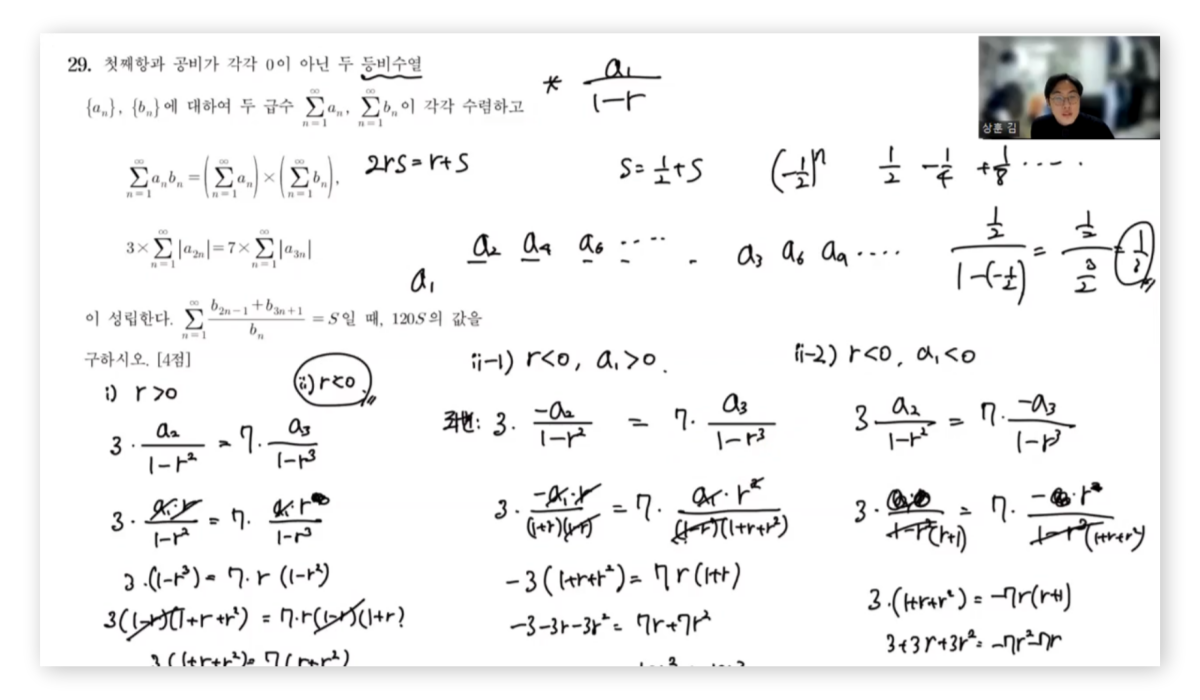 29. 첫째항과 공비가 각각 0이 아닌 두 등비수열
{aₙ}, {bₙ}에 대하여 두 급수 ∑_{n=1}^{∞} aₙ, ∑_{n=1}^{∞} bₙ이 각각 수렴하고
∑_{n=1}^{∞} aₙbₙ = (∑_{n=1}^{∞} aₙ) × (∑_{n=1}^{∞} bₙ),
3 × ∑_{n=1}^{∞} |a₂ₙ| = 7 × ∑_{n=1}^{∞} |a₃ₙ|
이 성립한다. ∑_{n=1}^{∞} (b₂ₙ₋₁ + b₃ₙ₊₁)/bₙ = S일 때, 120S의 값을
구하시오. [4점]
* a₁/(1-r)
상훈 김
2rs = r+s
s = 1/2 + s
(-1/2)ⁿ
1/2 - 1/4 + 1/8 ····
a₂ a₄ a₆ ····
a₃ a₆ a₉ ····
(1/2)/(1-(-1/2)) = (1/2)/(3/2) = 1/3
a₁
i) r>0
3 · a₂/(1-r²) = 7 · a₃/(1-r³)
3 · (a₁·r)/(1-r²) = 7 · (a₁·r²)/(1-r³)
3·(1-r³) = 7·r(1-r²)
3(1-r)(1+r+r²) = 7·r(1-r)(1+r)
3(1+r+r²) = 7(r+r²)
ii) r<0
ii-1) r<0, a₁>0.
좌변: 3 · -a₂/(1-r²) = 7 · a₃/(1-r³)
3 · (-a₁·r)/((1+r)(1-r)) = 7 · (a₁·r²)/((1-r)(1+r+r²))
-3(1+r+r²) = 7r(1+r)
-3-3r-3r² = 7r+7r²
ii-2) r<0, a₁<0
3 a₂/(1-r²) = 7 · -a₃/(1-r³)
3+3r+3r² = -7r²-7r
3·(1+r+r²) = -7r(r+1)